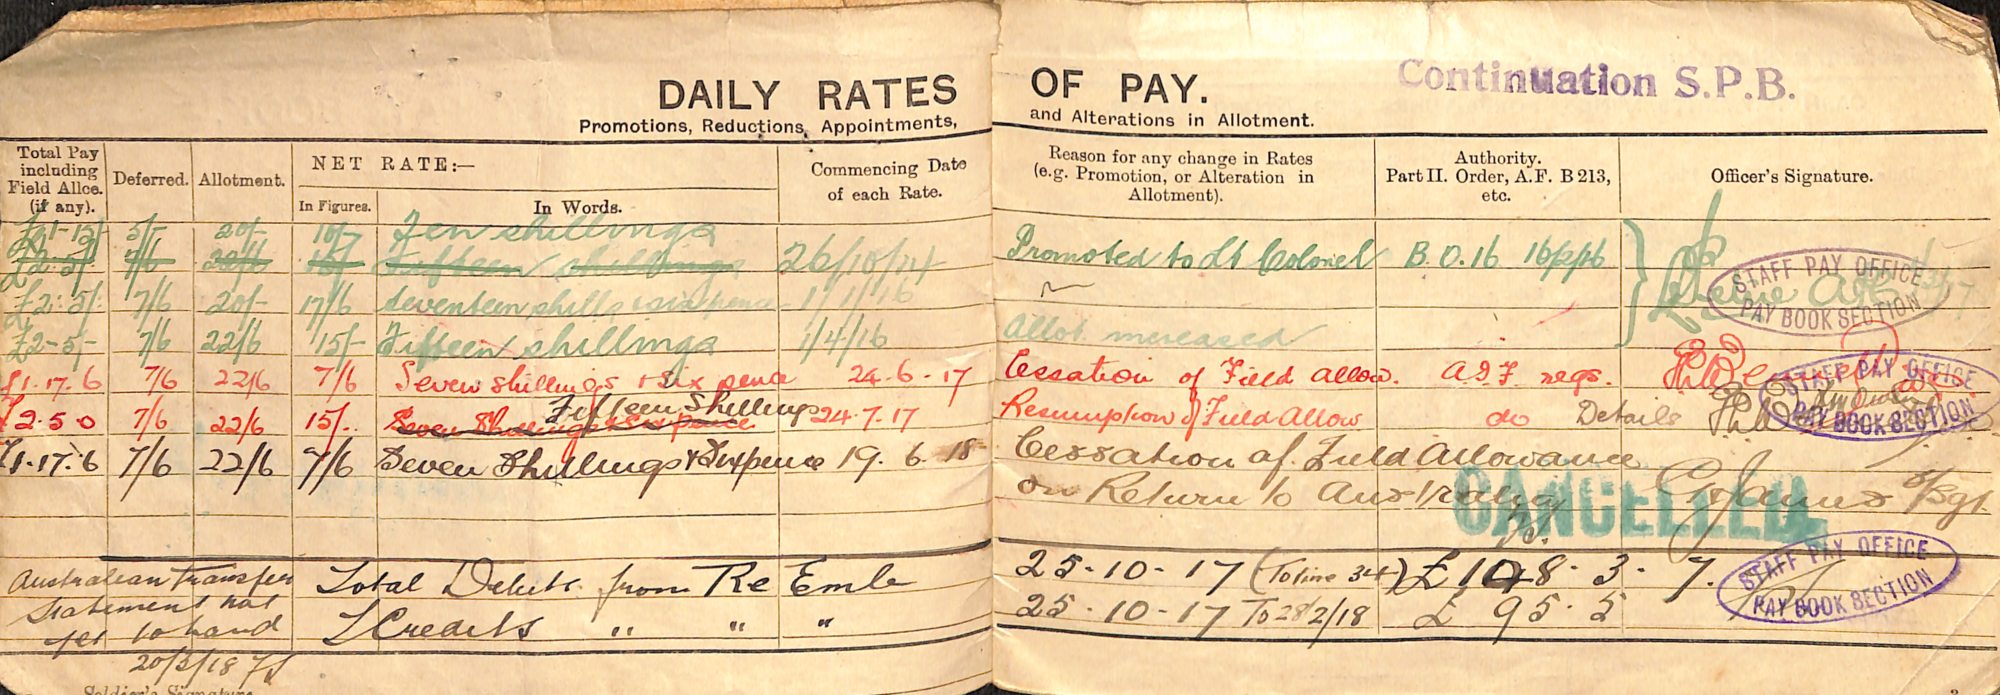 DAILY RATES OF PAY. Continuation S.P.B.
Promotions, Reductions, Appointments, and Alterations in Allotment.
Total Pay including Field Allce. (if any).
Deferred.
Allotment.
NET RATE:—
In Figures.
In Words.
Commencing Date of each Rate.
Reason for any change in Rates (e.g. Promotion, or Alteration in Allotment).
Authority. Part II. Order, A.F. B 213, etc.
Officer's Signature.
£1-15/- 5/- 20/- 10/- Ten shillings
£2.5/- 7/6 22/6 15/- Fifteen shillings 26/10/14 Promoted to Lt Colonel B.O.16 16/2/16
£2.5/- 7/6 20/- 17/6 seventeen shills & sixpence 1/1/16
£2-5/- 7/6 22/6 15/- Fifteen shillings 1/4/16 Allot increased
£1.17.6 7/6 22/6 7/6 Seven shillings & six pence 24.6.17 Cessation of Field Allow. A.I.F regs.
£2.5.0 7/6 22/6 15/- Seven Shillings & Sixpence Fifteen Shillings 24.7.17 Resumption of Field Allow do Details
£1.17.6 7/6 22/6 7/6 Seven Shillings & Sixpence 19.6.18 Cessation of Field Allowance
on Return to Australia
STAFF PAY OFFICE
PAY BOOK SECTION
STAFF PAY OFFICE
PAY BOOK SECTION
CANCELLED
Australian transfer Total Debits from Re Emb 25-10-17 (To line 34) £108.3.7.
statement not
yet to hand Credits " " " 25.10-17 To 28/2/18 £95.5
STAFF PAY OFFICE
PAY BOOK SECTION
20/3/18
Soldier's Signature